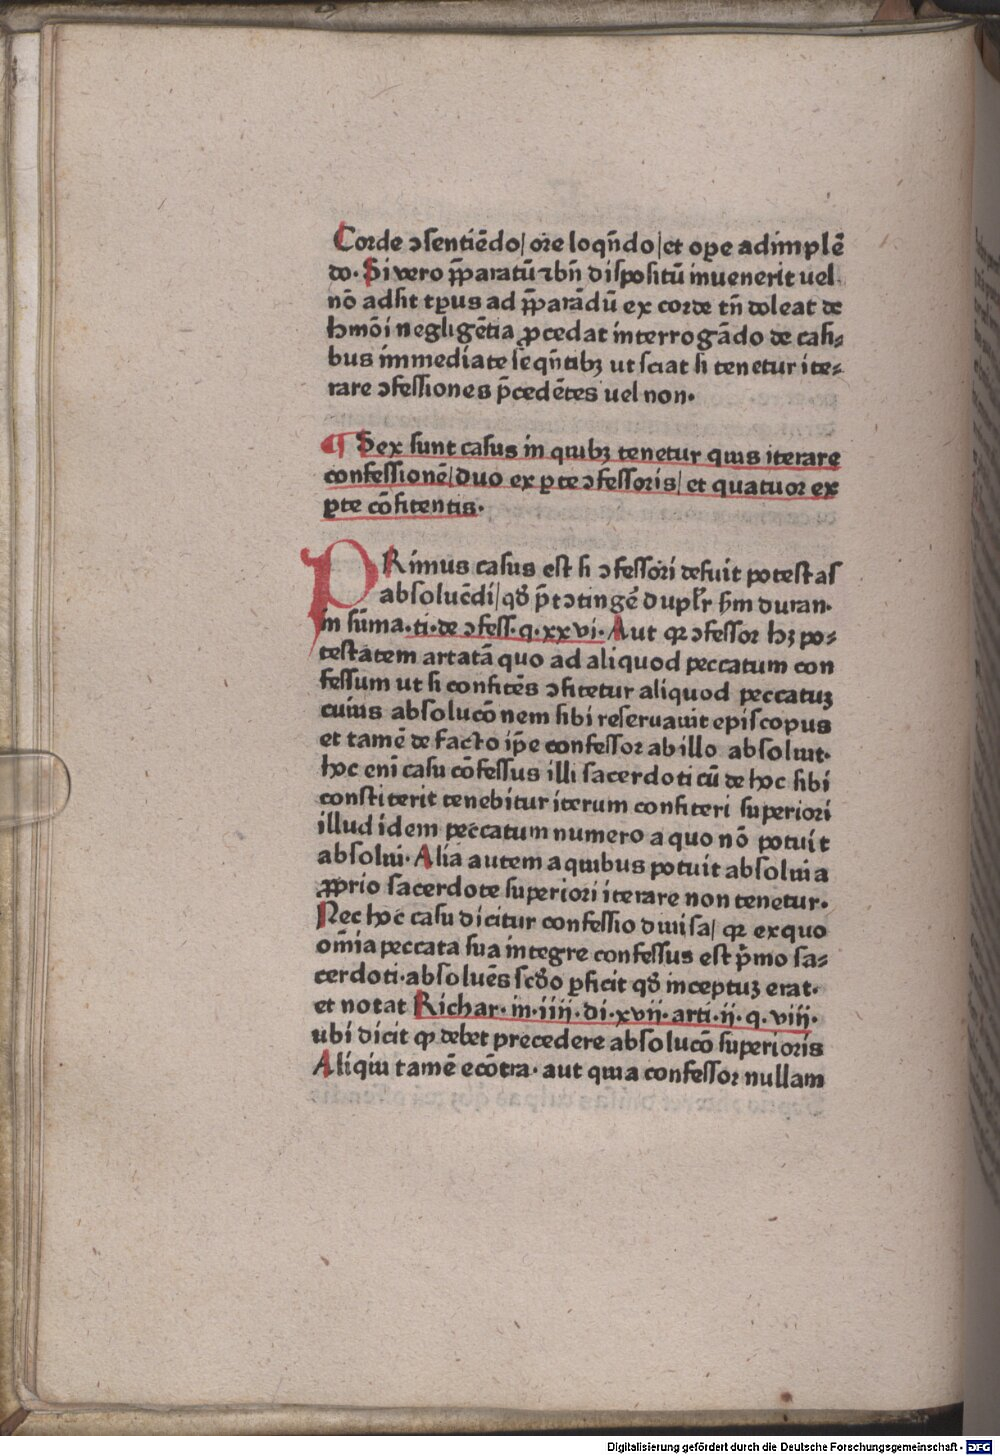 Corde ↄsentiēdo/ ore loqn̄do/et oꝑe adimplē
do. Si vero p̄paratū ⁊ bn̄ dispositū inuenerit uel
nō adsit tp̄us ad p̄parādū ex corde tn̄ doleat de
hm̄ōi negligētia ꝓcedat interrogādo de casi⸗
bus immediate seqn̄tibꝫ ut sciat si tenetur ite⸗
rare ↄfessiones p̄cedētes uel non.
¶ Sex sunt casus in quibꝫ tenetur quis iterare
confessionē/duo ex ꝑte ↄfessoris/ et quatuor ex
ꝑte cōfitentis.
PRimus casus est si ↄfessori defuit potestas
absoluēdi/ qḋ p̄t ↄtingē dupl̄r sm̄ duran.
in sūma.ti.de ↄfess.q.xxvi. Aut qꝛ ↄfessor hꝫ po⸗
testatem artatā quo ad aliquod peccatum con
fessum ut si confitēs ↄfitetur aliquod peccatuꝫ
cuius absolucōnem sibi reseruauit episcopus
et tamē de facto ip̄e confessor ab illo absoluit.
hoc eni casu cōfessus illi sacerdoti cū de hoc sibi
constiterit tenebitur iterum confiteri superiori
illud idem peccatum numero a quo nō potuit
absolui. Alia autem a quibus potuit absolui a
ꝓprio sacerdote superiori iterare non tenetur.
Nec hoc casu dicitur confessio diuisa/ qꝛ ex quo
om̄ia peccata sua integre confessus est p̄mo sa⸗
cerdoti.absoluēs scḋo ꝑficit qḋ inceptuꝫ erat.
et notat Richar.in.iiii.di.xvii.arti.ii.q.viii.
ubi dicit ꝙ debet precedere absolucō superioris
Aliqui tamē ecōtra. aut quia confessor nullam
Digitalisierung gefördert durch die Deutsche Forschungsgemeinschaft - DFG